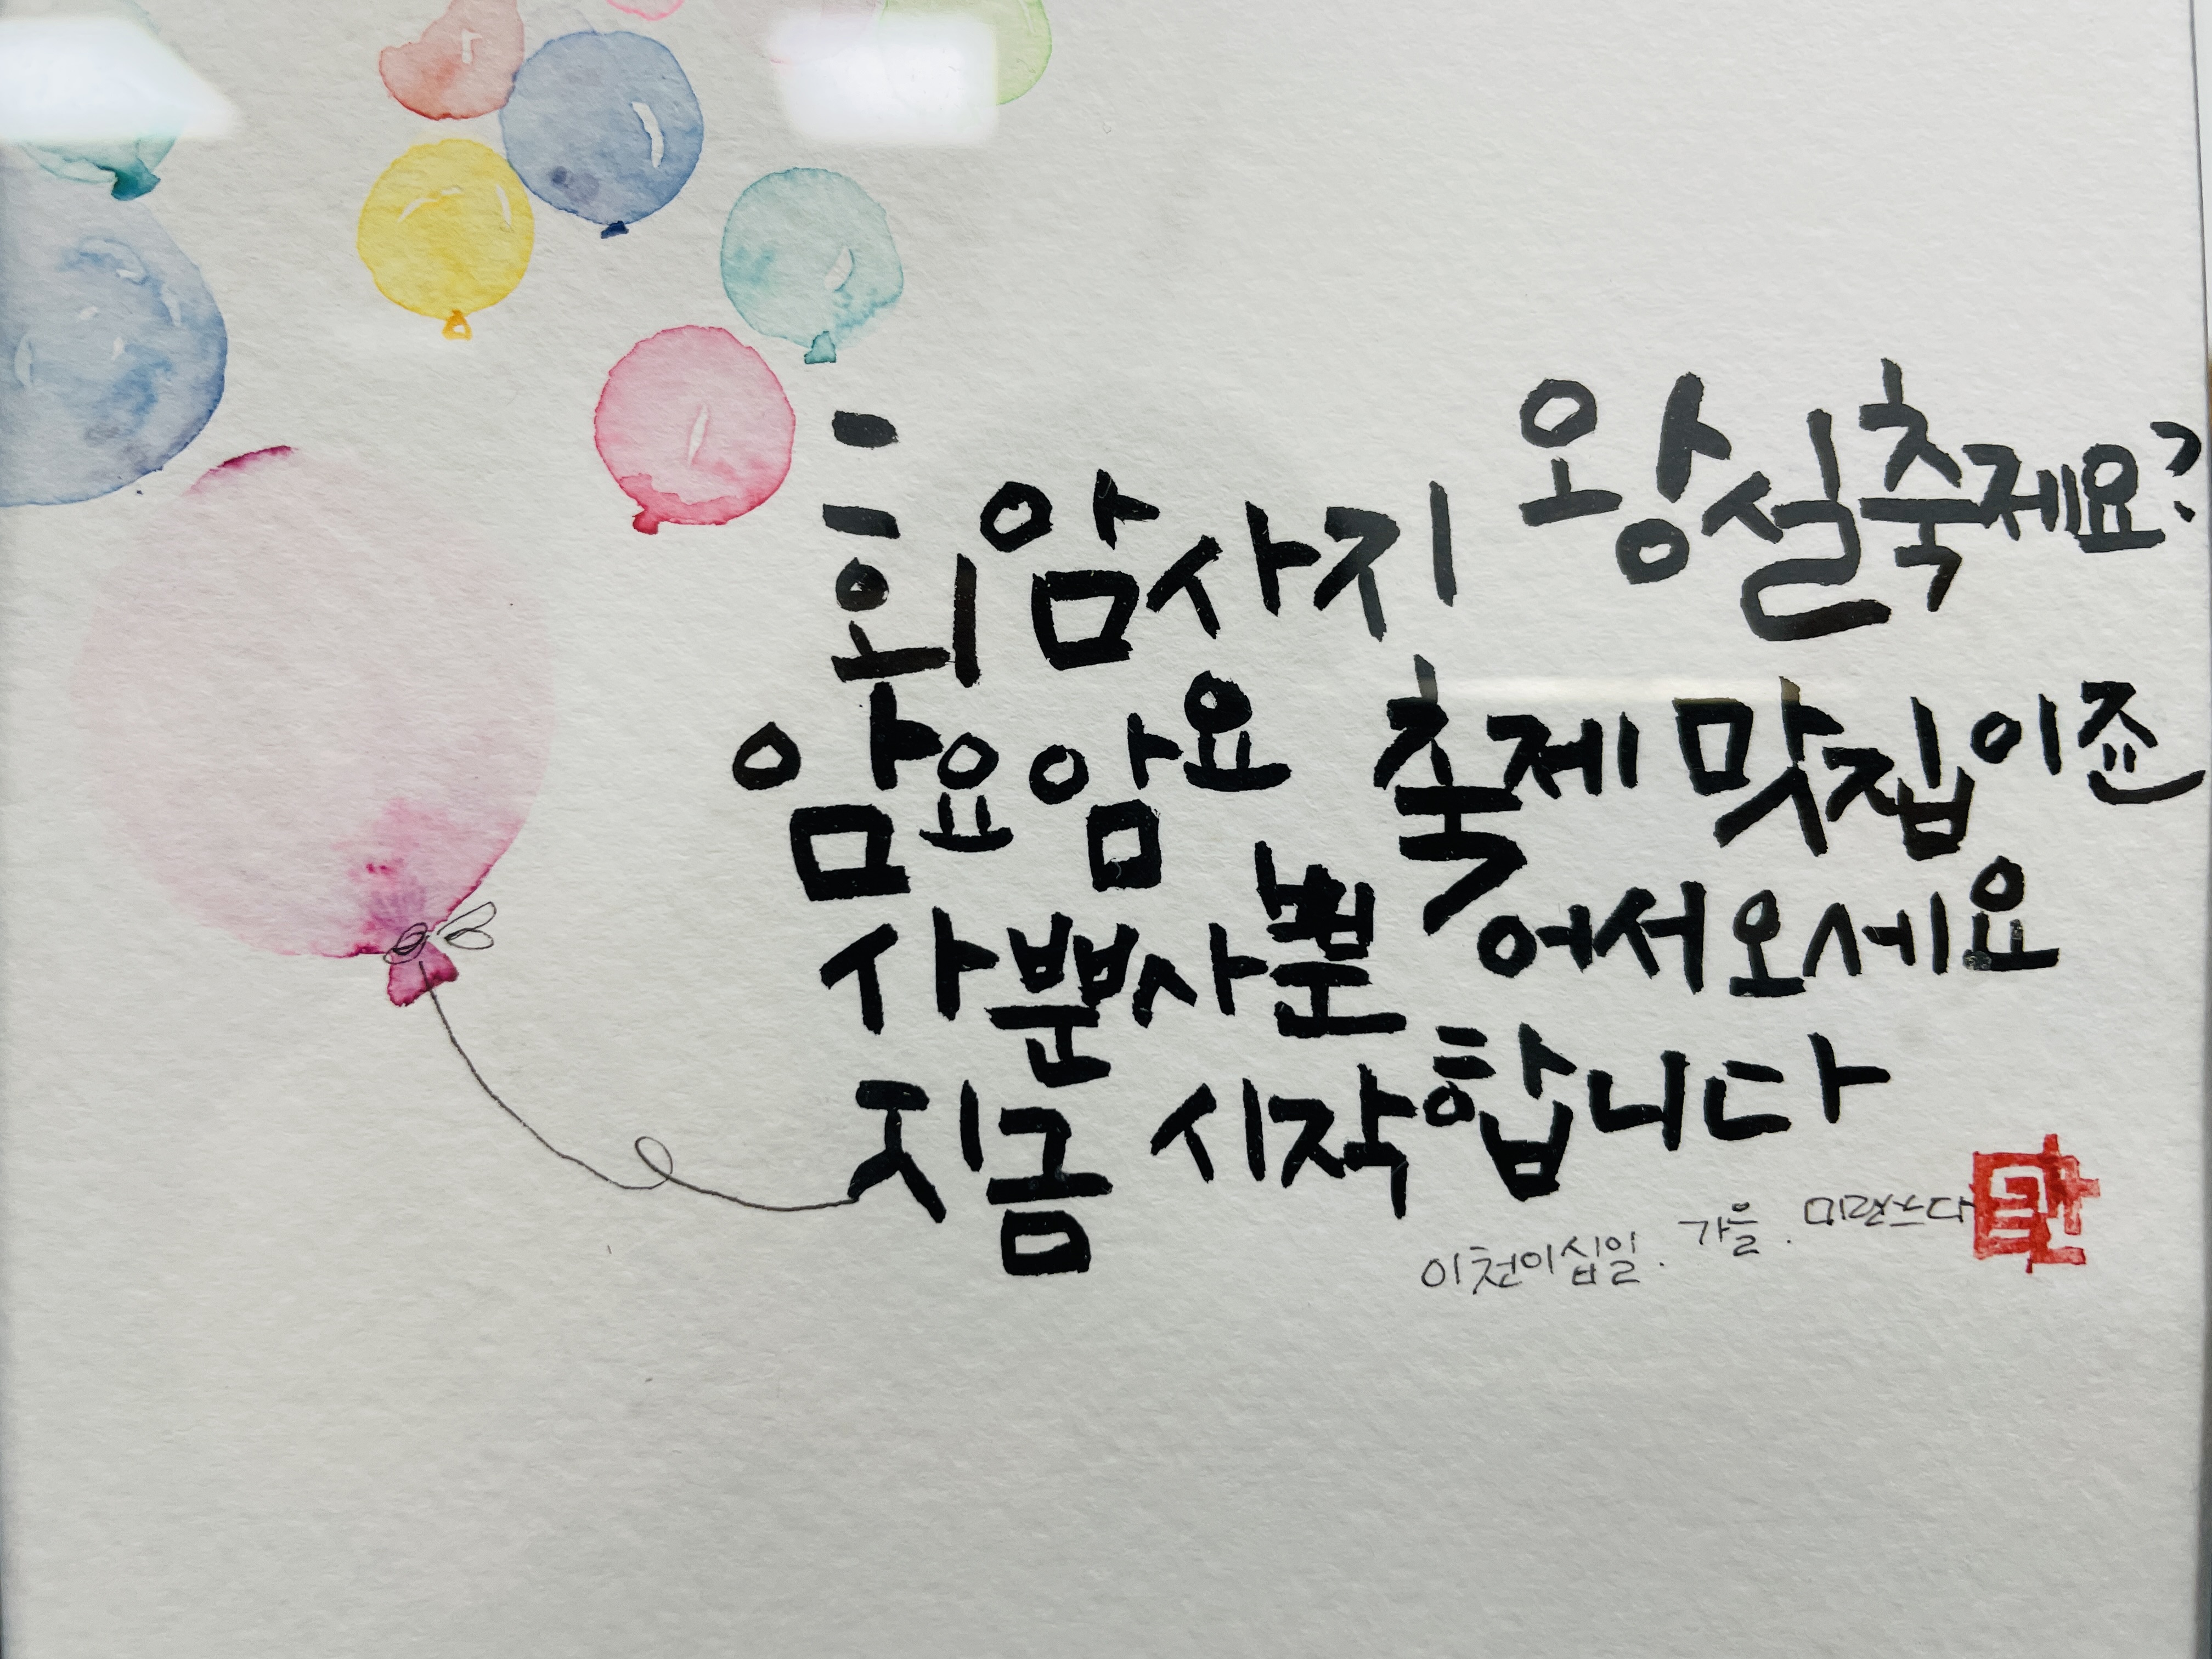 회암사지 왕실축제요?
암요암요 축제 맛집이죠
사뿐사뿐 어서오세요
지금 시작합니다
이천이십일. 가을. 미란쓰다
란